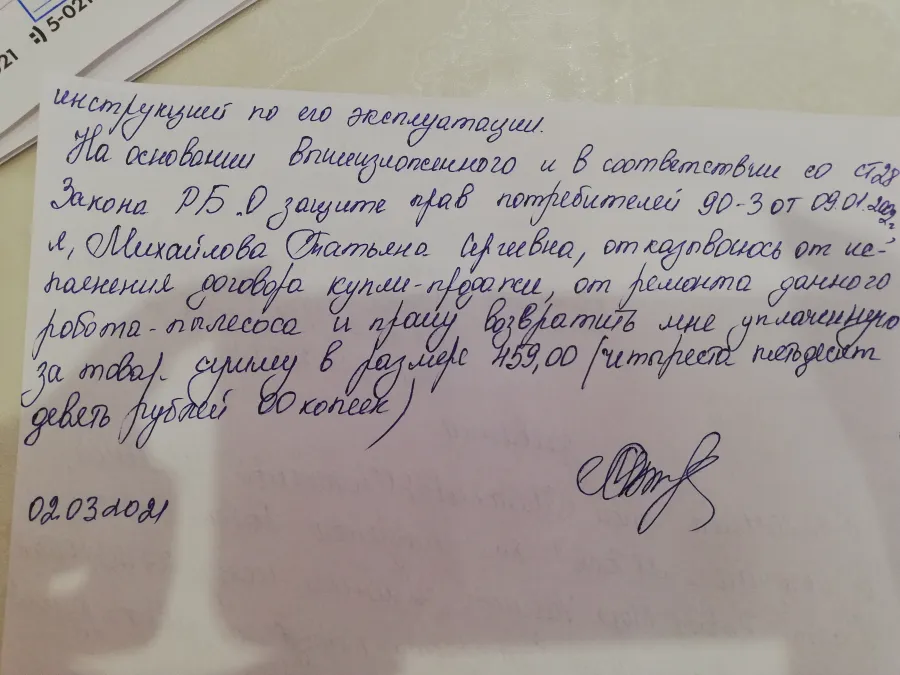 021
:) 5-021
инструкцией по его эксплуатации.
На основании вышеизложенного и в соответствии со ст28
Закона РБ.О защите прав потребителей 90-З от 09.01.2002г,
я, Михайлова Татьяна Сергеевна, отказываюсь от ис-
полнения договора купли-продажи, от ремонта данного
робота-пылесоса и прошу возвратить мне уплаченную
за товар. сумму в размере 459,00 (четыреста пятьдесят
девять рублей 00 копеек)
02.03.2021